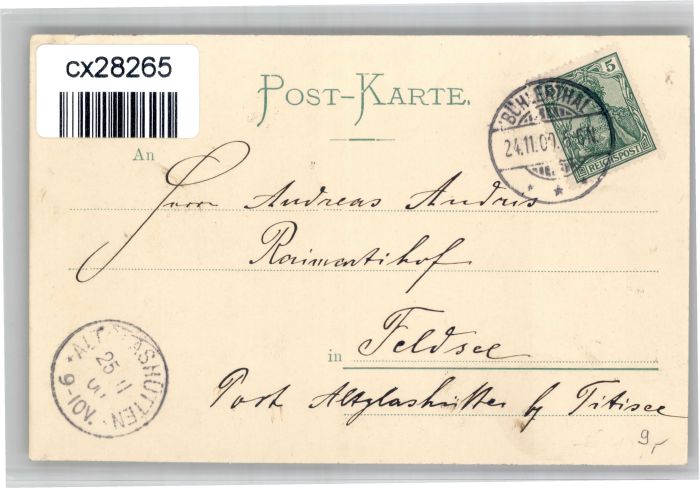 cx28265
POST-KARTE.
BÜHLERTHAL
24.11.00.
5
REICHSPOST
An
Herrn Andreas Andris
Raimartihof
in Feldsee
Post Altglashütten by Titisee
ALTGLASHÜTTEN
25 11
00
9-10V.
9,-